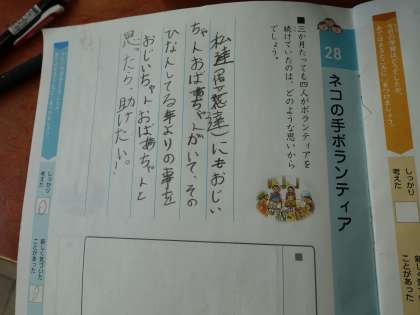 しっかり
考えた
新しく気づいた
ことがあった
28
ネコの手ボランティア
■三か月たっても四人がボランティアを
続けていたのは、どのような思いから
でしょう。
私達（達）にもおじい
ちゃんおばあちゃんがいて、その
ひなんしてる年よりの事を
おじいちゃんおばあちゃんと
思ったら、助けたい。
■
しっかり
考えた
新しく気づいた
ことがあった